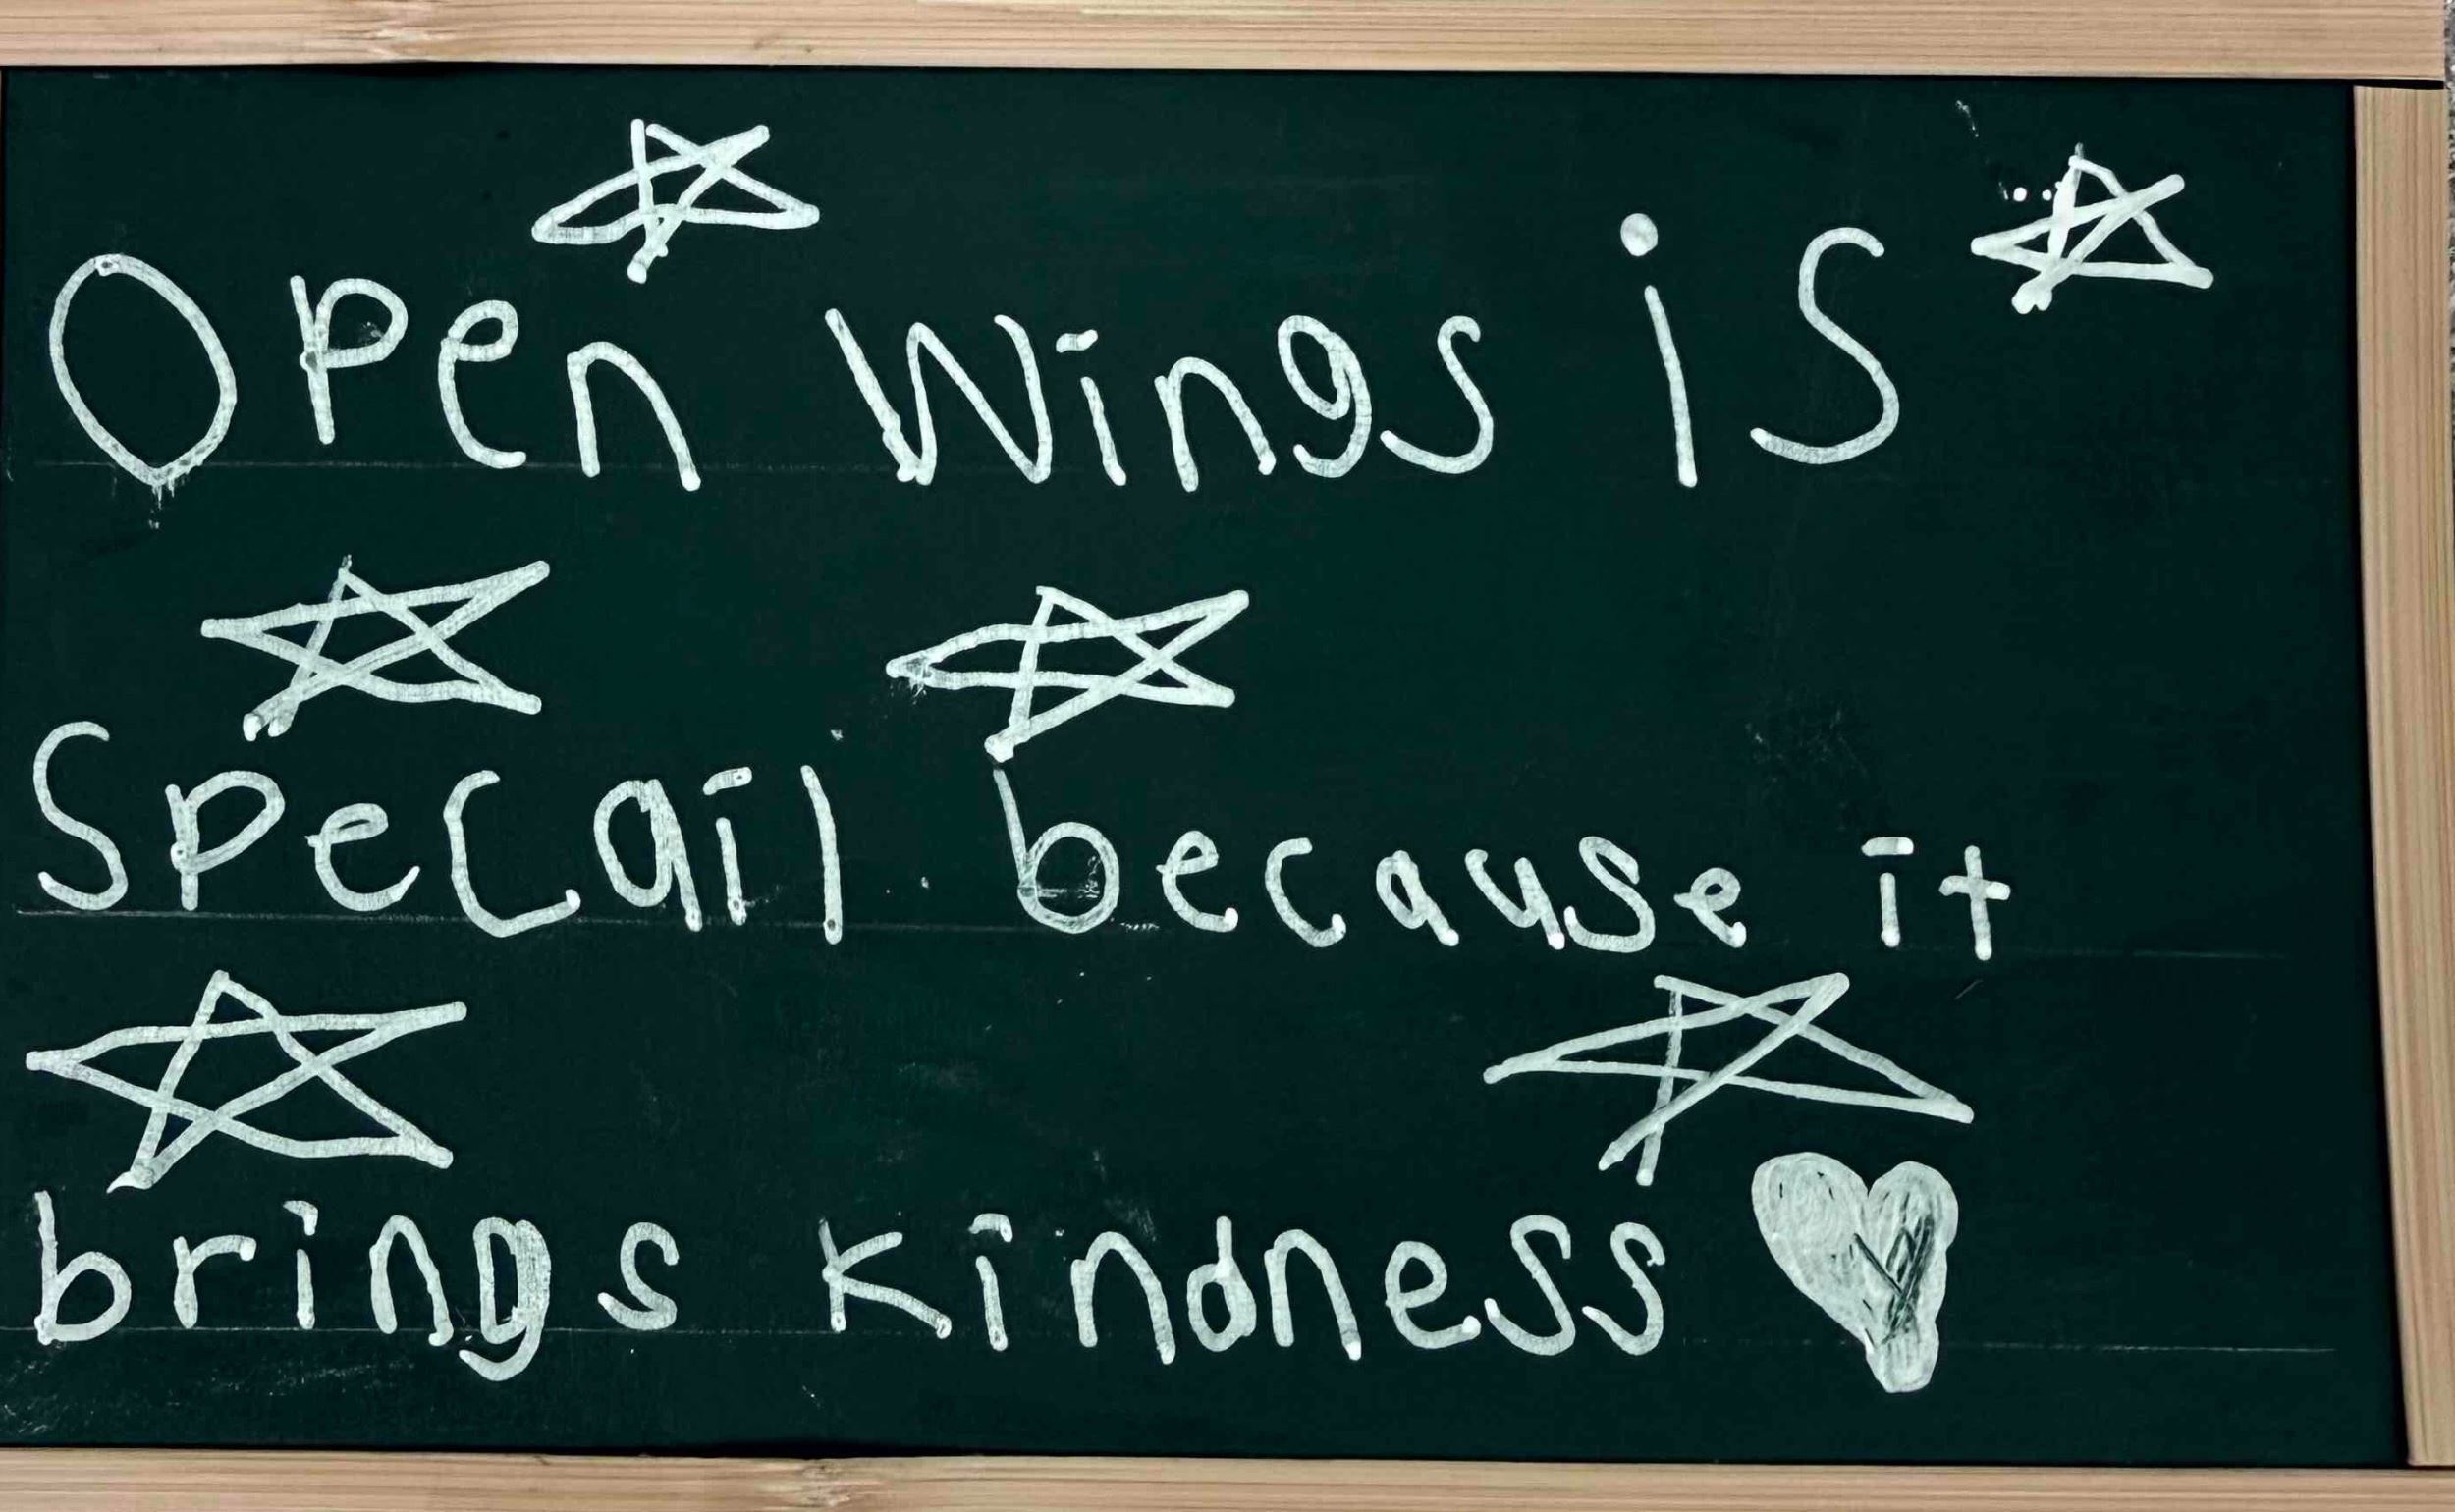 Open Wings is
Specail because it
brings kindness